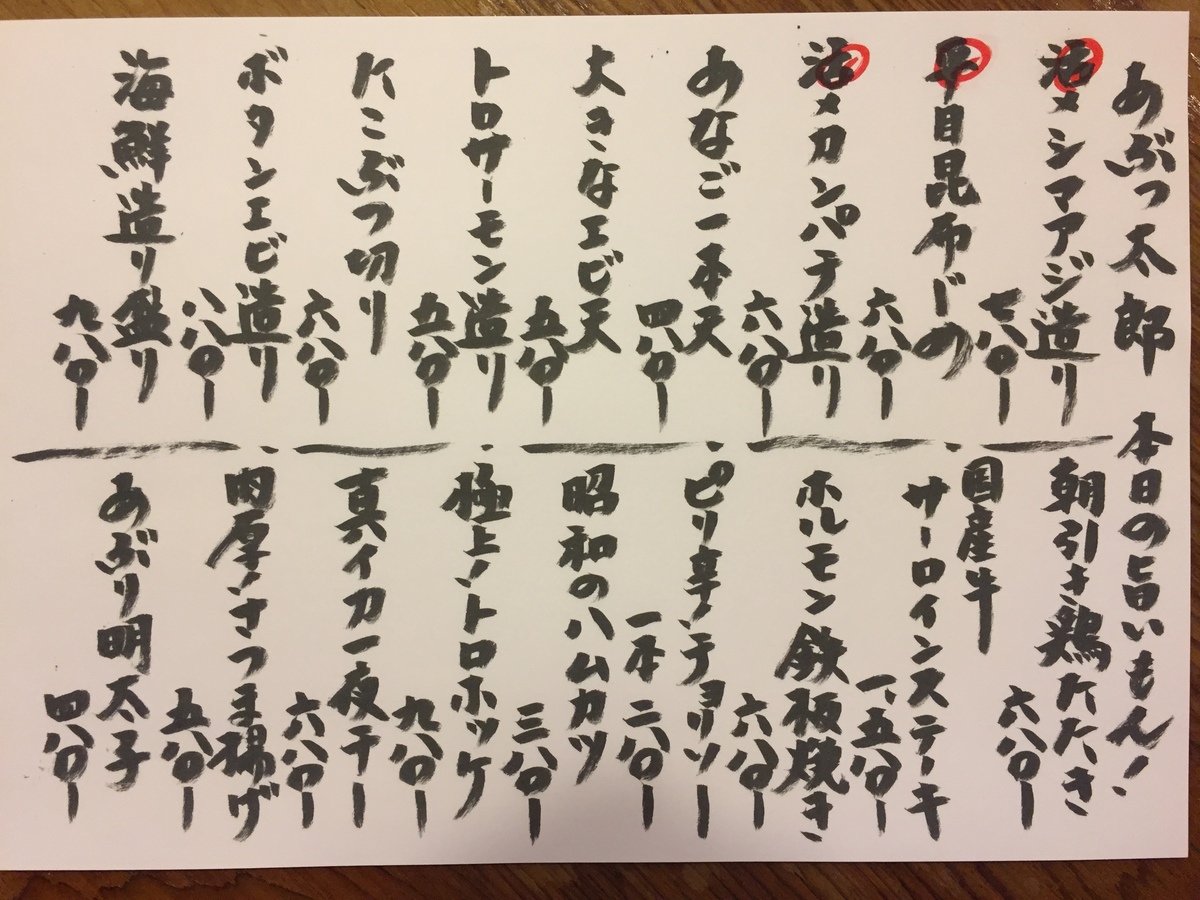 あぶつ太郎 本日の旨いもん！
活〆シマアジ造り
七八〇ー
平目昆布〆の
六八〇ー
活〆カンパチ造り
六八〇ー
あなご一本天
四八〇ー
大きなエビ天
五八〇ー
トロサーモン造り
五八〇ー
たこぶつ切り
六八〇ー
ボタンエビ造り
八八〇ー
海鮮造り盛り
九八〇ー
朝引き鶏たたき
六八〇ー
国産牛
サーロインステーキ
一、五八〇ー
ホルモン鉄板焼き
六八〇ー
ピリ辛！チョリソー
一本二八〇ー
昭和のハムカツ
三八〇ー
極上！トロホッケ
九八〇ー
真イカ一夜干ー
六八〇ー
肉厚！さつま揚げ
五八〇ー
あぶり明太子
四八〇ー